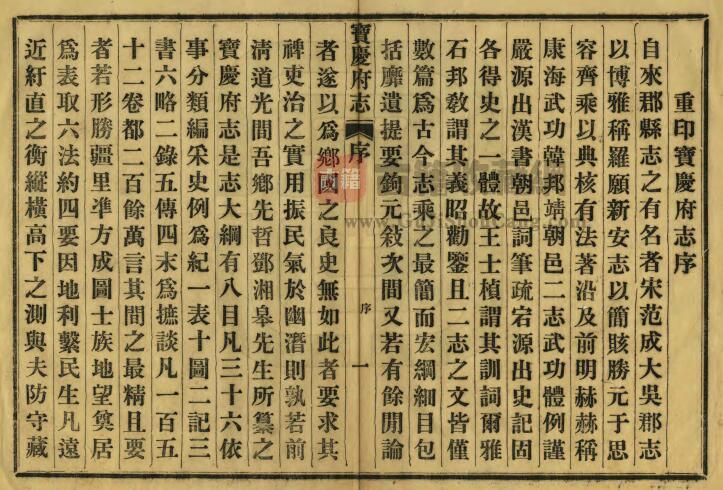 重印寶慶府志序
自來郡縣志之有名者宋范成大吳郡志
以博雅稱羅願新安志以簡賅勝元于思
容齊乘以典核有法著沿及前明赫赫稱
康海武功韓邦靖朝邑二志武功體例謹
嚴源出漢書朝邑詞筆疏宕源出史記固
各得史之一體故王士楨謂其訓詞爾雅
石邦教謂其義昭勸鑒且二志之文皆僅
數篇爲古今志乘之最簡而宏綱細目包
括靡遺提要鉤元敍次間又若有餘閒論
寶慶府志 序
序 一
者遂以爲鄉國之良史無如此者要求其
裨吏治之實用振民氣於幽潛則孰若前
清道光間吾鄉先哲鄧湘皋先生所纂之
寶慶府志是志大綱有八目凡三十六依
事分類編采史例爲紀一表十圖二記三
書六略二錄五傳四末爲摭談凡一百五
十二卷都二百餘萬言其間之最精且要
者若形勝疆里準方成圖士族地望奠居
爲表取六法約四要因地利繫民生凡遠
近紆直之衡縱橫高下之測與夫防守藏